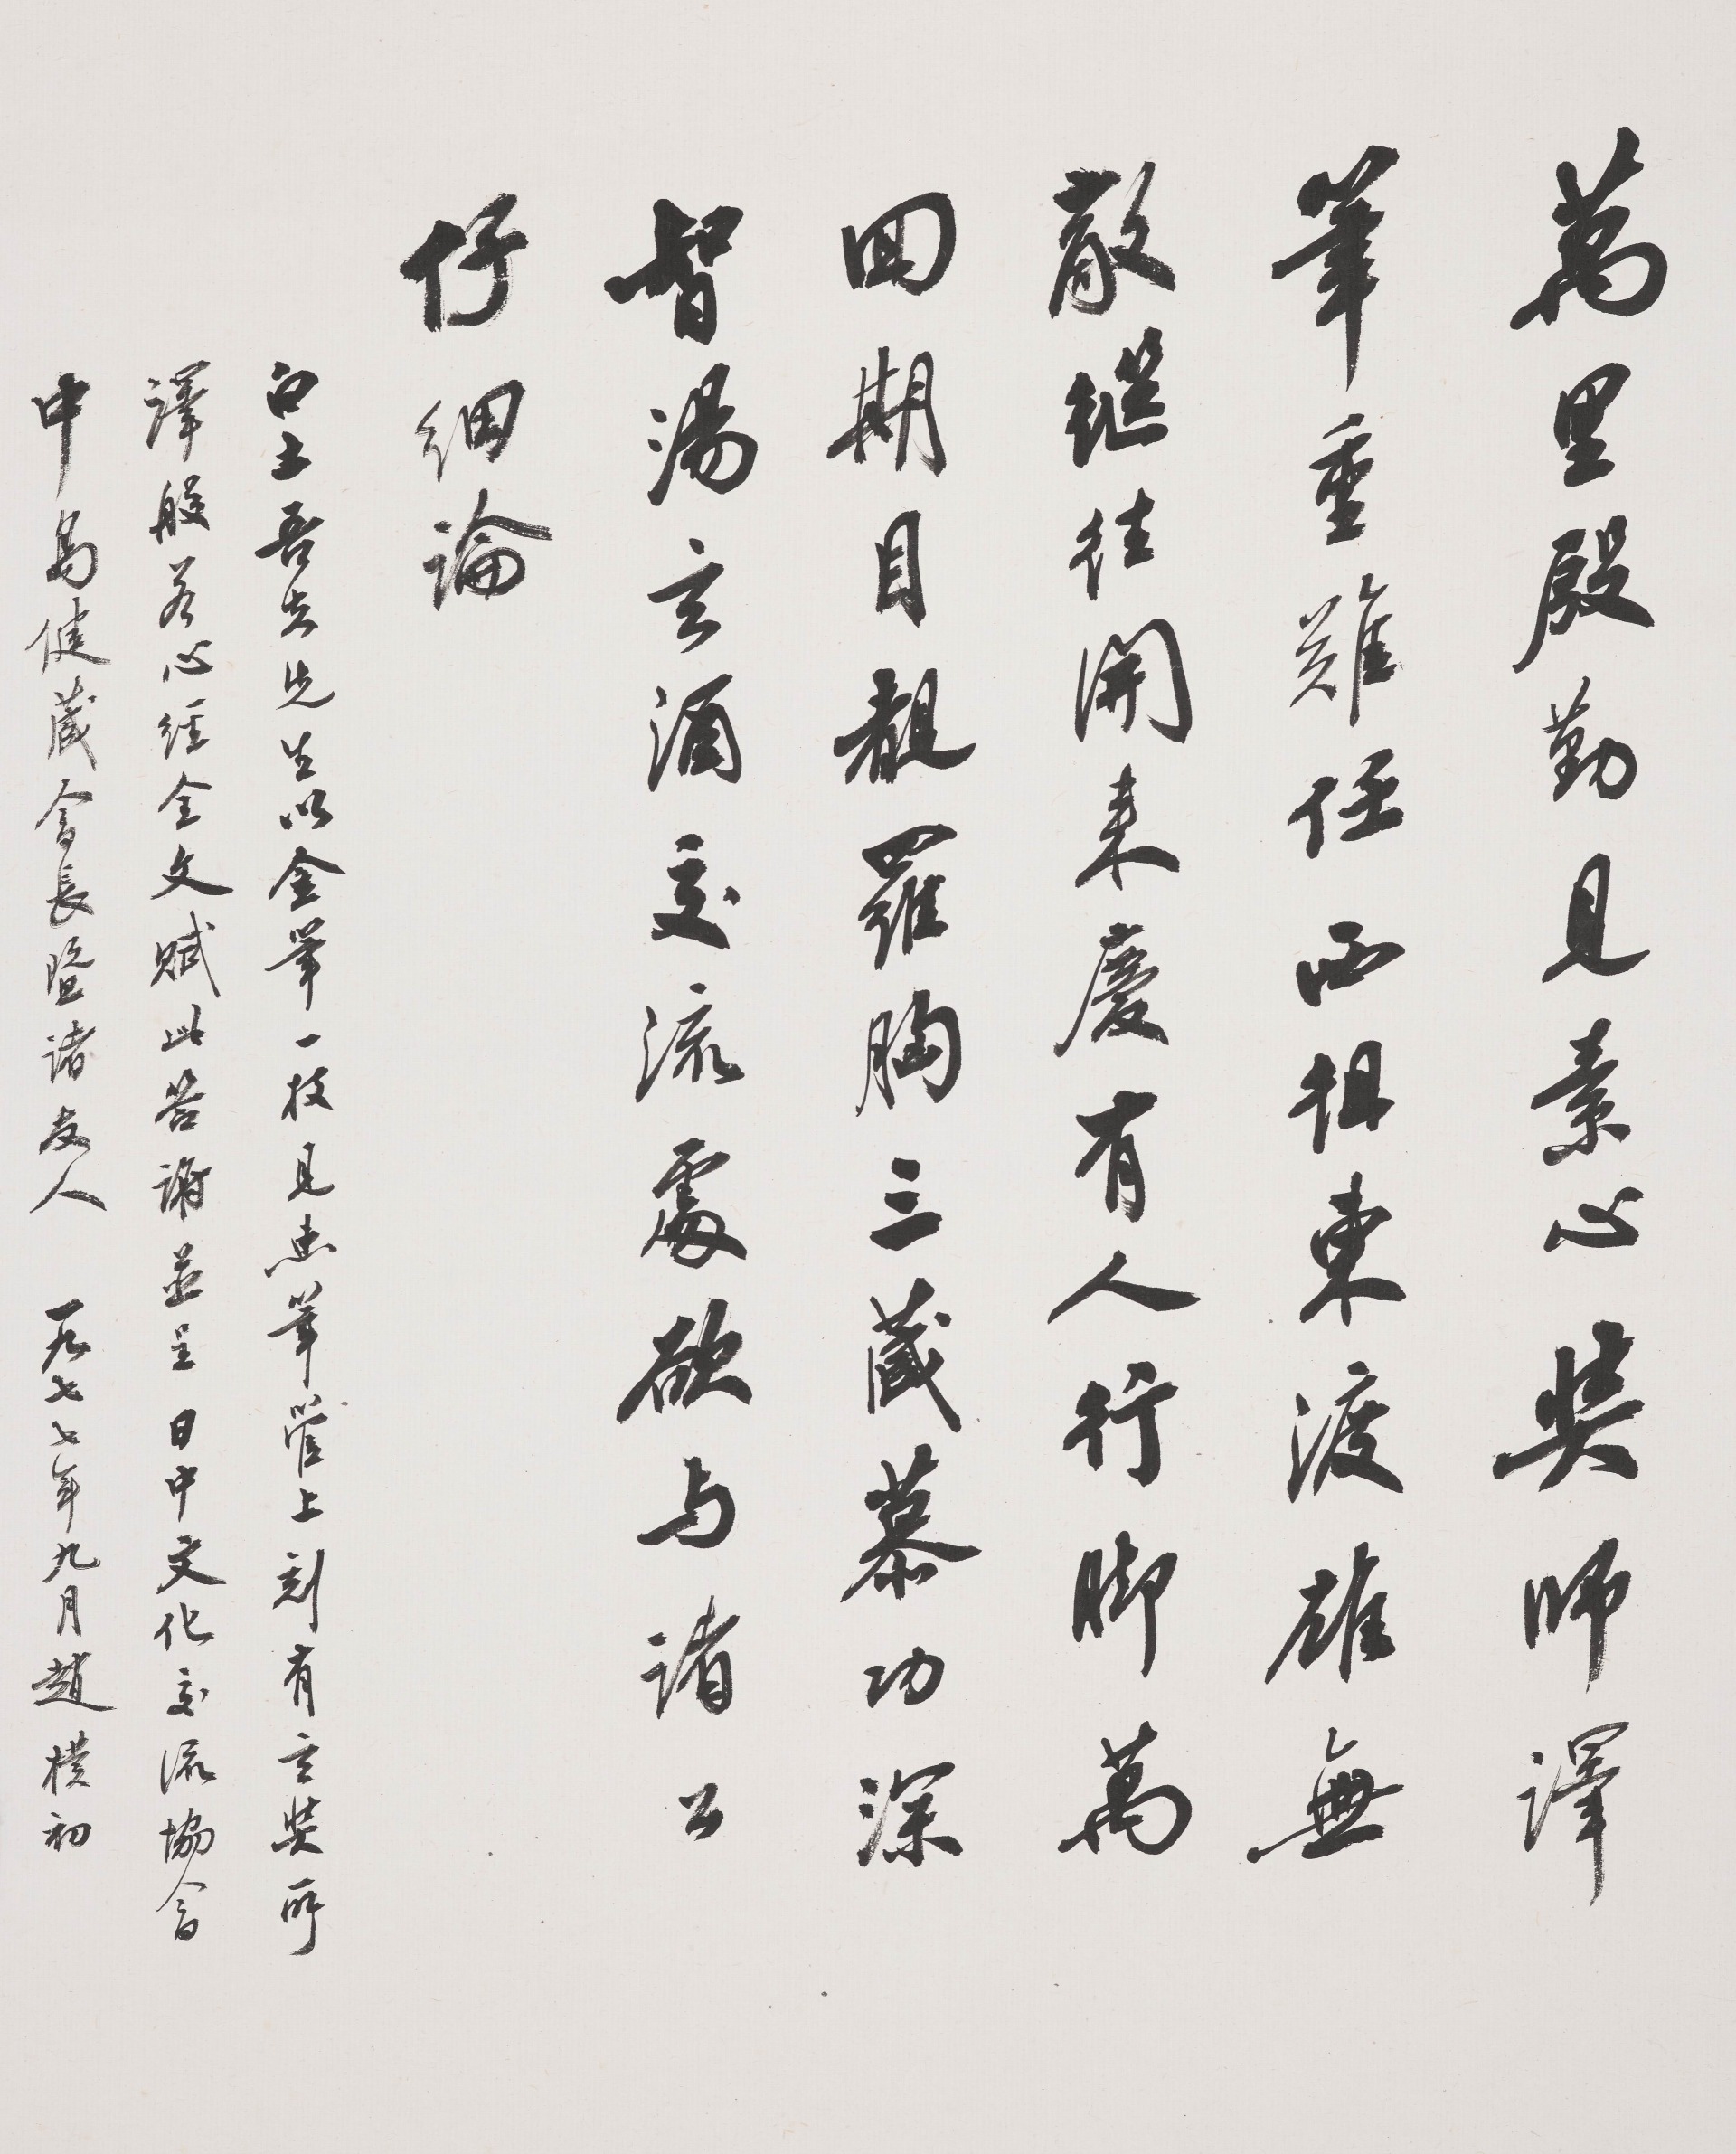 萬里殷勤見素心奘師譯
筆重難任西徂東渡雄無
敵继往開来慶有人行脚萬
回期目覩羅胸三藏慕功深
智湯言酒交流處欲与诸公
仔细論
白土吾夫先生以金筆一枝見惠筆管上刻有玄奘所
譯般若心经全文赋此答謝並呈日中文化交流協會
中島健藏會長暨诸友人 一九七七年九月趙樸初